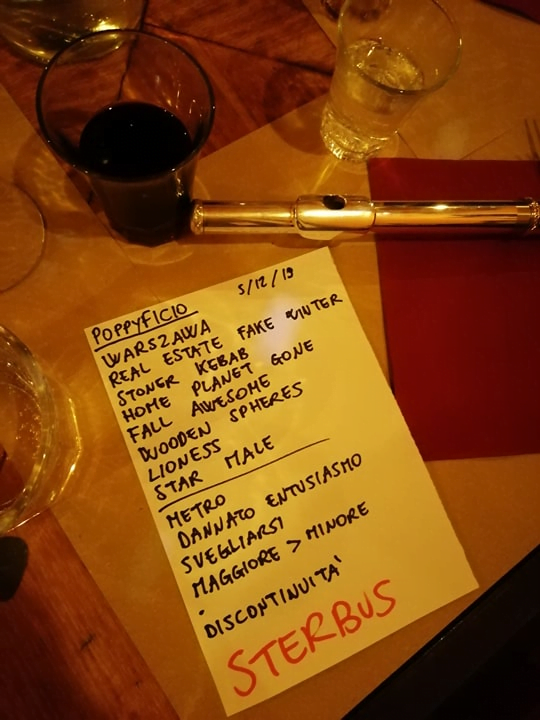 POPPYFICIO
5/12/19
WARSZAWA
REAL ESTATE FAKE WINTER
STONER KEBAB
HOME PLANET GONE
FALL AWESOME
WOODEN SPHERES
LIONESS
STAR MALE
METRO
DANNATO ENTUSIASMO
SVEGLIARSI
MAGGIORE > MINORE
.
DISCONTINUITA'
STERBUS